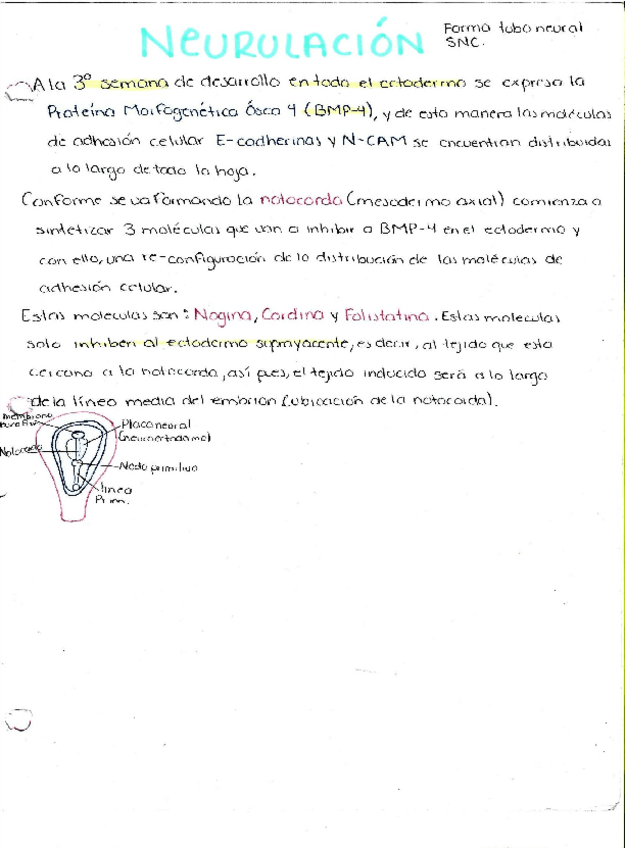 NEURULACIÓN
Forma tubo neural
SNC.
A la 3º semana de desarrollo en todo el ectodermo se expresa la
Proteína Morfogenética Ósea 4 (BMP-4), y de esta manera las moléculas
de adhesión celular E-cadherinas y N-CAM se encuentran distribuidas
a lo largo de toda la hoja.
Conforme se va formando la notocorda (mesodermo axial) comienza a
sintetizar 3 moléculas que van a inhibir a BMP-4 en el ectodermo y
con ello, una re-configuración de la distribución de las moléculas de
adhesión celular.
Estas moleculas son: Nogina, Cordina y Folistatina. Estas moleculas
solo inhiben al ectodermo suprayacente, es decir, al tejido que esta
cercano a la notocorda, así pues, el tejido inducido será a lo largo
de la línea media del embrion (ubicación de la notocorda).
membrana
Placa neural
(neuroectodermo)
Notocorda
Nodo primitivo
línea
Prim.